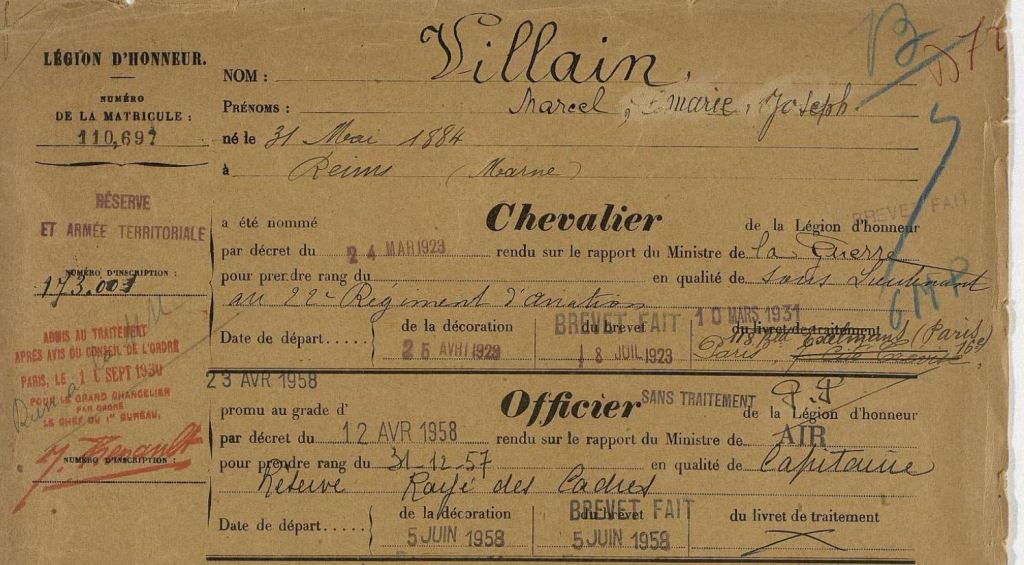 Villain,
LÉGION D'HONNEUR.
NOM :
NUMÉRO
DE LA MATRICULE :
110,697
PRÉNOMS : Marcel, Marie, Joseph
né le 31 Mai 1884
à Reims (Marne)
RÉSERVE
ET ARMÉE TERRITORIALE
NUMÉRO D'INSCRIPTION :
173.001
ADMIS AU TRAITEMENT
APRÈS AVIS DU CONSEIL DE L'ORDRE
PARIS, LE 16 SEPT 1930
POUR LE GRAND CHANCELIER
PAR ORDRE
LE CHEF DU 1er BUREAU,
NUMÉRO D'INSCRIPTION :
BREVET FAIT
a été nommé Chevalier de la Légion d'honneur
par décret du 24 MAR 1923 rendu sur le rapport du Ministre de la Guerre
pour prendre rang du en qualité de Sous Lieutenant
au 22e Régiment d'aviation
Date de départ..... de la décoration du brevet du livret de traitement
BREVET FAIT 10 MARS 1931
25 AVRI 1923 18 JUIL 1923
(Paris)
Paris, 16e
23 AVR 1958
promu au grade d' Officier SANS TRAITEMENT de la Légion d'honneur
par décret du 12 AVR 1958 rendu sur le rapport du Ministre de AIR
pour prendre rang du 31-12-57 en qualité de Capitaine
Réserve Rayé des Cadres
Date de départ..... de la décoration du brevet du livret de traitement
BREVET FAIT
5 JUIN 1958 5 JUIN 1958